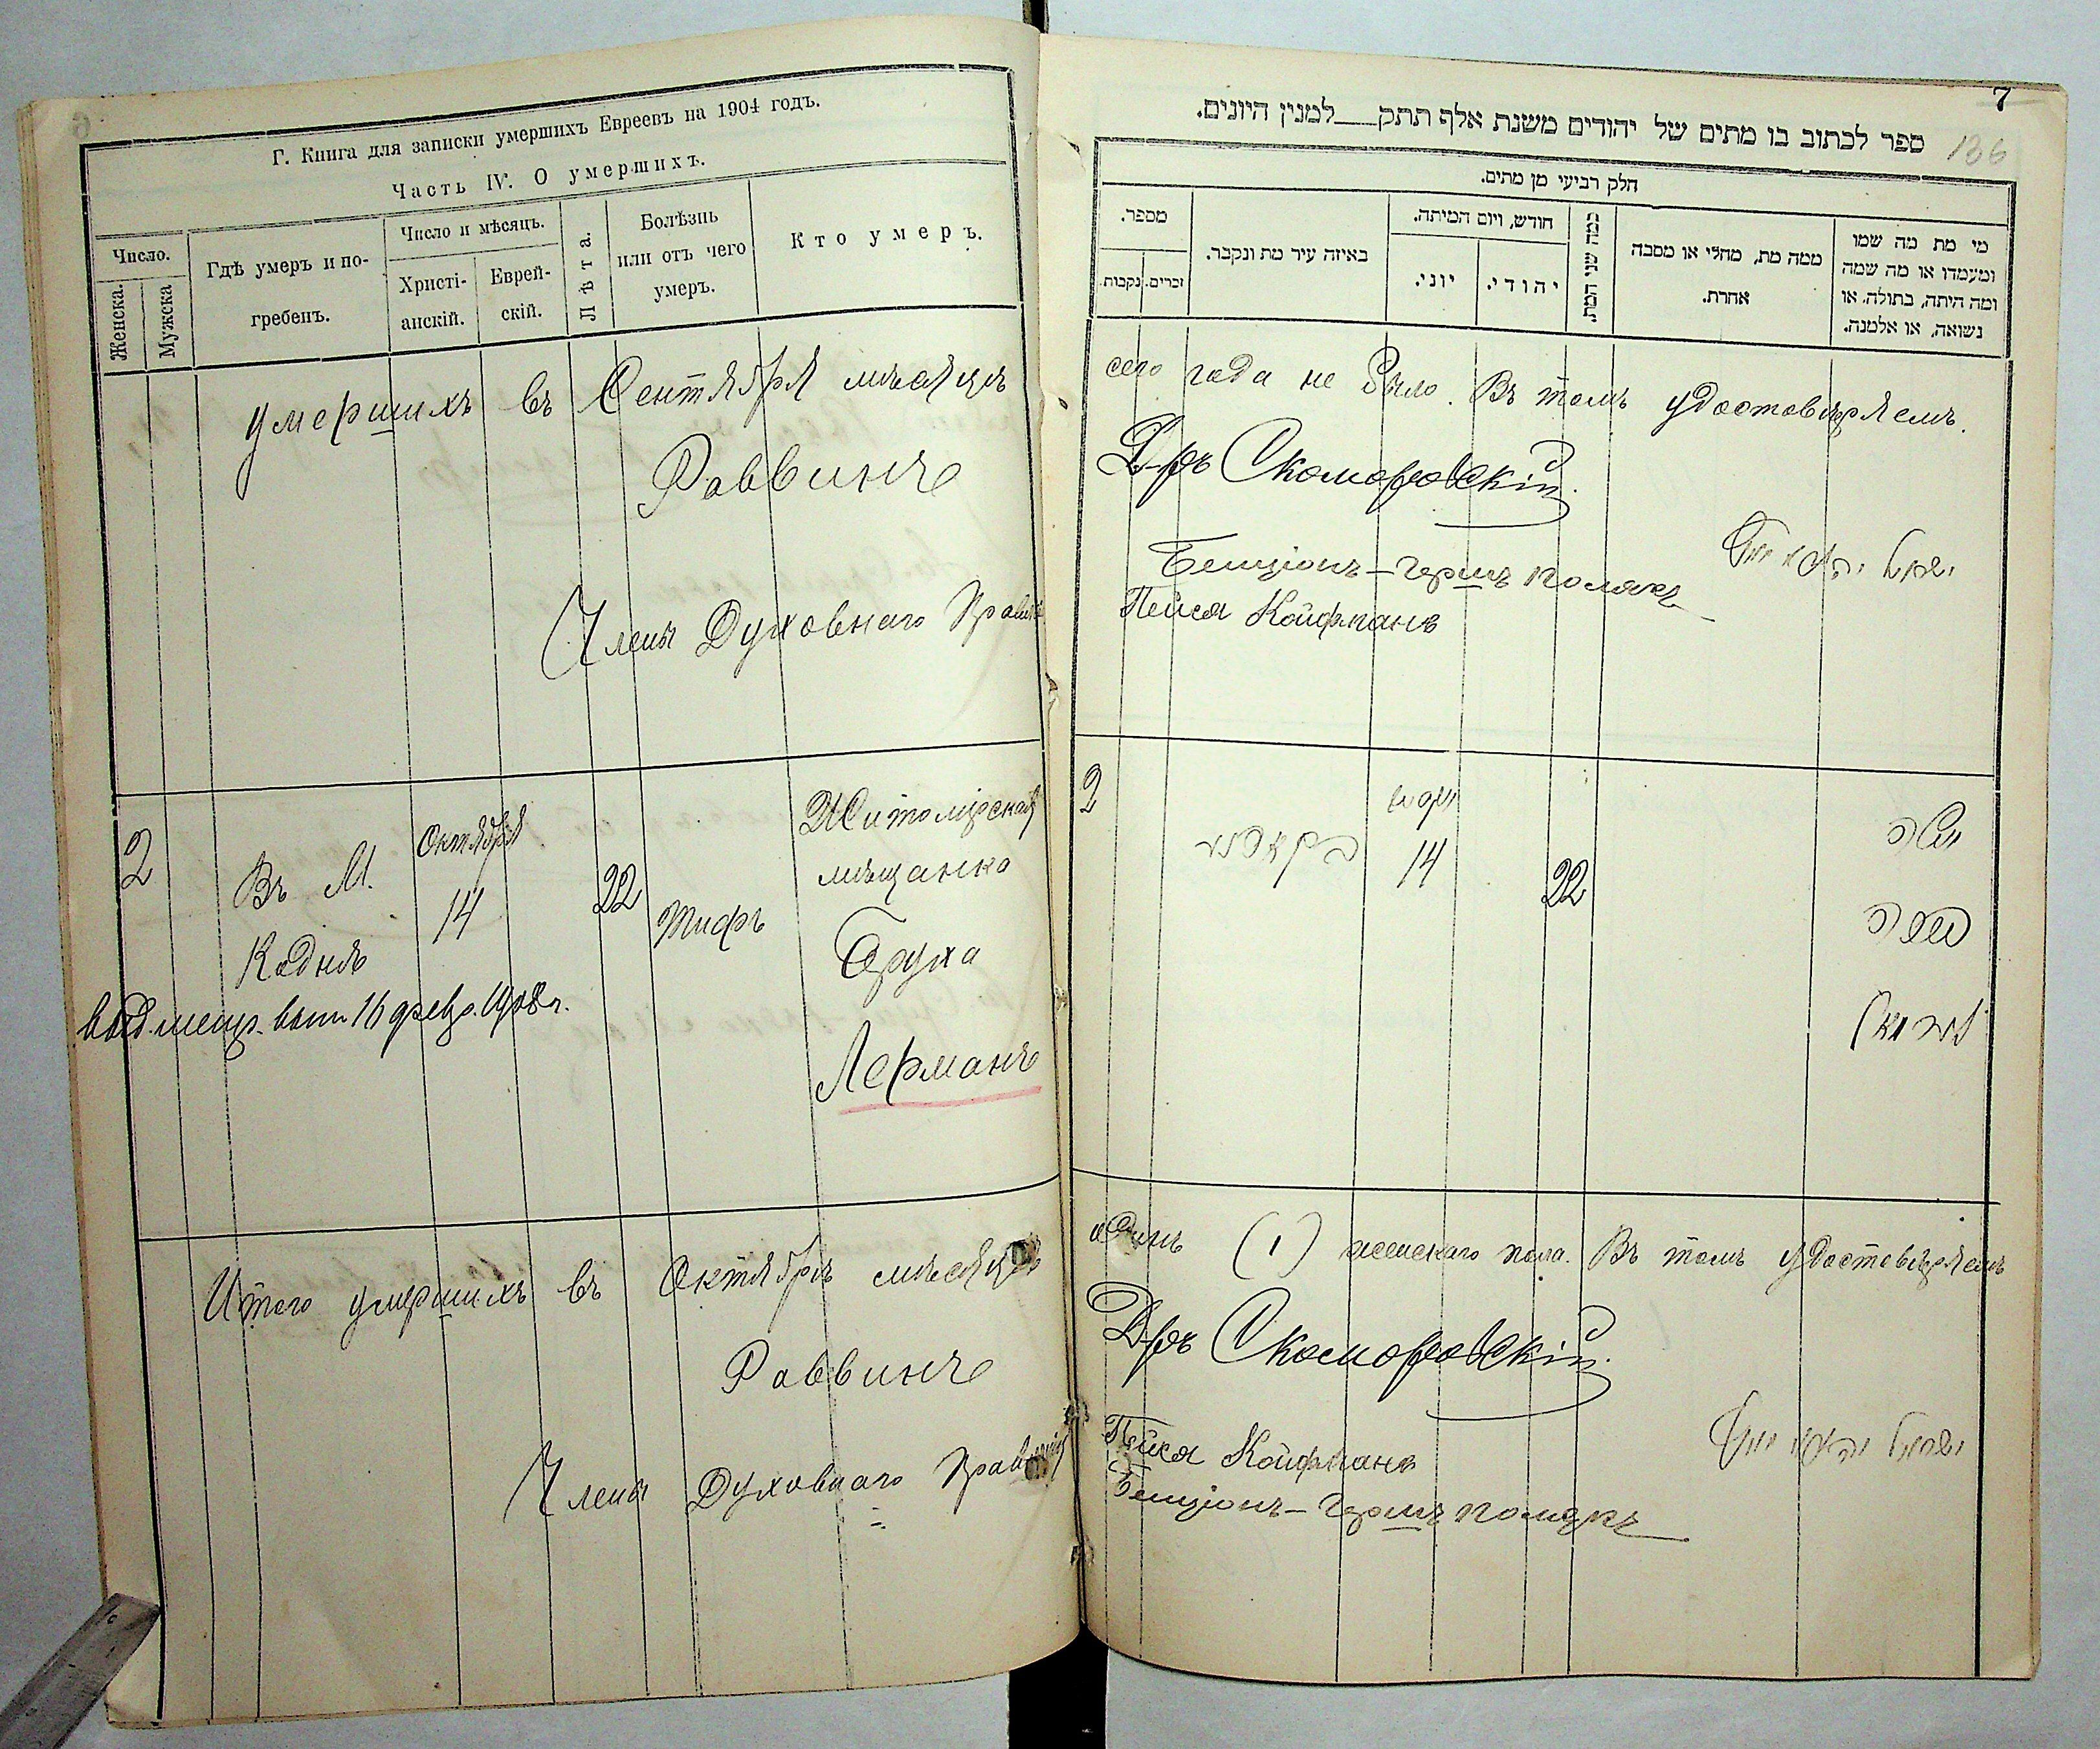 Г. Книга для записки умершихъ Евреевъ на 1904 годъ.
Часть IV. О умершихъ.
Число.
Женска.
Мужска
Гдѣ умеръ и по-
гребенъ.
Число и мѣсяцъ.
Христі-
анскій.
Еврей-
скій.
Лѣта.
Болѣзнь
или отъ чего
умеръ.
Кто умеръ.
умершихъ въ Сентября мѣсяцѣ
Раввинъ
Члены Духовнаго
2
Въ М.
Октября
14
22
Тифъ
Житомірская
мѣщанка
Бруха
Лерманъ
Итого умершихъ въ Октябрѣ мѣсяцѣ
Раввинъ
Члены Духовнаго
7
136
ספר לכתוב בו מתים של יהודים משנת אלף תתק___למנין היונים.
חלק רביעי מן מתים.
מספר.
זכרים.
נקבות.
באיזה עיר מת ונקבר.
חודש, ויום המיתה.
יוני.
יהודי.
כמה שני המת
ממה מת, מחלי או מסבה
אחרת.
מי מת מה שמו
ומעמדו או מה שמה
ומה היתה, בתולה, או
נשואה, או אלמנה.
сего года не было. Въ томъ удостовѣряемъ.
Д-ръ Скоморовскій
Бенціонъ-Гершъ Полякъ
Пейся Койфманъ
2
14
22
одинъ (1) женскаго пола. Въ томъ удостовѣряемъ
Д-ръ Скоморовскій
Пейся Койфманъ
Бенціонъ-Гершъ Полякъ